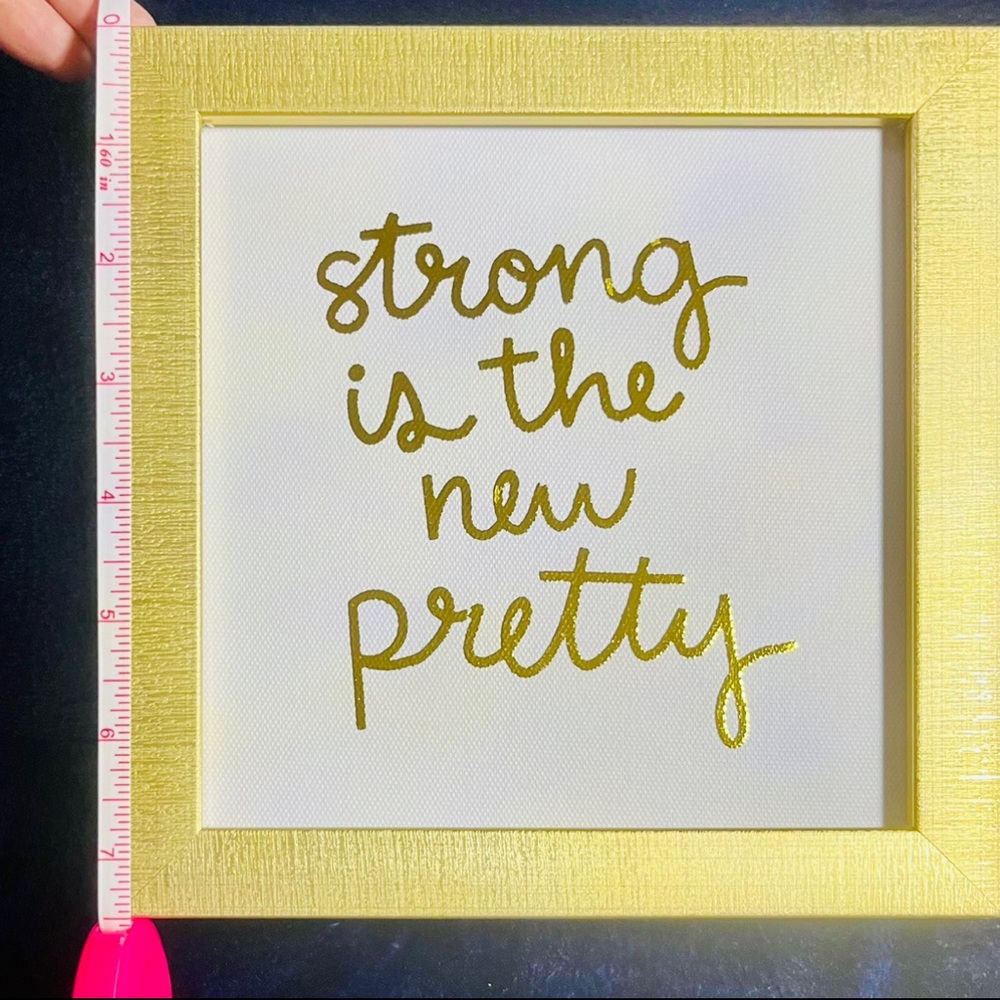 strong
is the
new
pretty
0
1
60 in
2
3
4
5
6
7